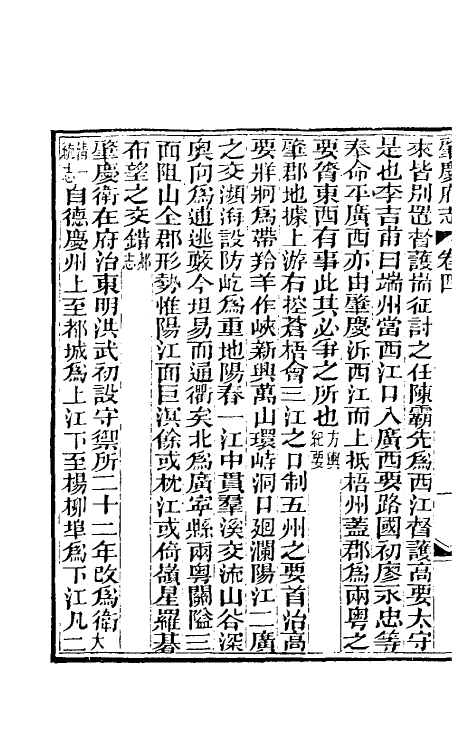 肇慶府志 卷四 一
來皆別置督護耑征討之任陳霸先爲西江督護高要太守
是也李吉甫曰端州當西江口入廣西要路國初廖永忠等
奉命平廣西亦由肇慶泝西江而上抵梧州蓋郡爲兩粵之
要膂東西有事此其必爭之所也方輿紀要
肇郡地據上游右控蒼梧會三江之口制五州之要首治高
要牂牁爲帶羚羊作峽新興萬山環峙洞口廻瀾陽江二廣
之交瀕海設防屹爲重地陽春一江中貫羣溪交流山谷深
奧向爲逋逃藪今坦易而通衢矣北爲廣寧縣兩粵關隘三
面阻山全郡形勢惟陽江面巨溟餘或枕江或倚嶺星羅碁
布望之交錯郝志
肇慶衛在府治東明洪武初設守禦所二十二年改爲衛大
清一統志自德慶州上至都城爲上江下至楊柳埠爲下江凡二